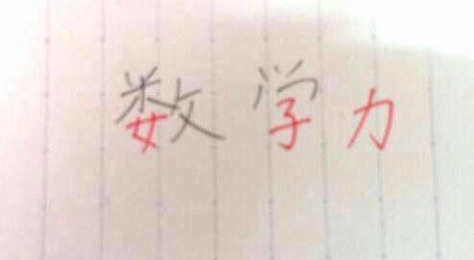 数学力